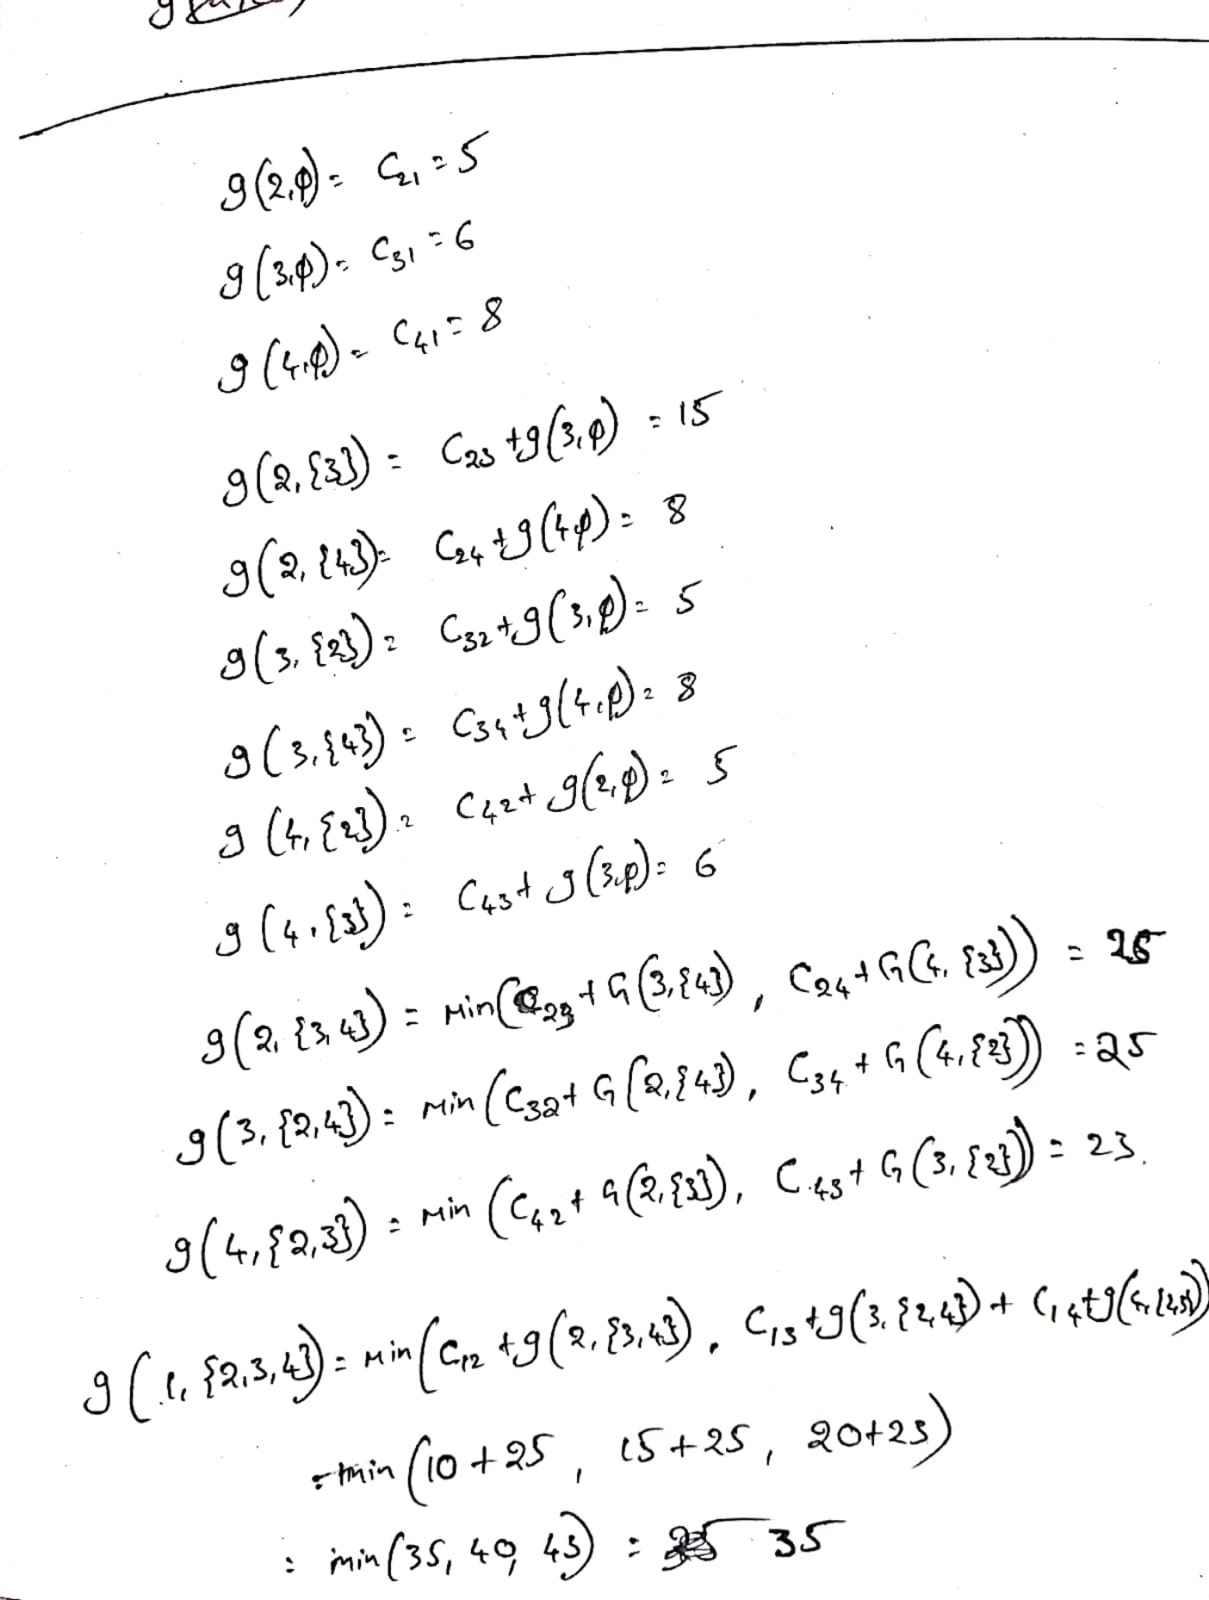 g(2,φ) = C21 = 5
g(3,φ) = C31 = 6
g(4,φ) = C41 = 8
g(2,{3}) = C23 + g(3,φ) = 15
g(2,{4}) = C24 + g(4,φ) = 8
g(3,{2}) = C32 + g(3,φ) = 5
g(3,{4}) = C34 + g(4,φ) = 8
g(4,{2}) = C42 + g(2,φ) = 5
g(4,{3}) = C43 + g(3,φ) = 6
g(2,{3,4}) = Min(C23 + G(3,{4}), C24 + G(4,{3})) = 25
g(3,{2,4}) = Min(C32 + G(2,{4}), C34 + G(4,{2})) = 25
g(4,{2,3}) = Min(C42 + G(2,{3}), C43 + G(3,{2})) = 23.
g(1,{2,3,4}) = Min(C12 + g(2,{3,4}), C13 + g(3,{2,4}) + C14 + g(4,{2,3}))
= min(10+25, 15+25, 20+23)
= min(35, 40, 43) = 35